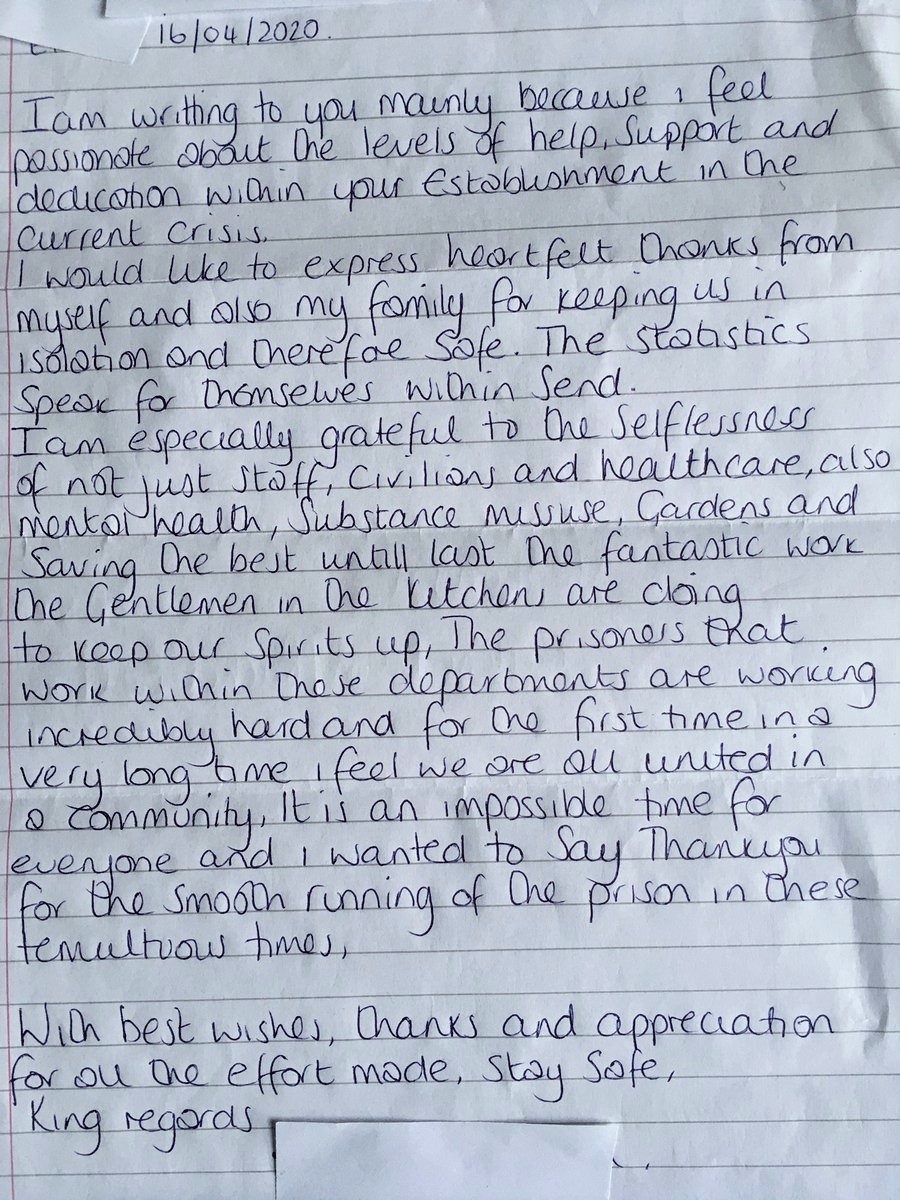 16/04/2020.
I am writting to you mainly because i feel
passionate about the levels of help, support and
dedication within your Establishment in the
current crisis.
I would like to express heartfelt thanks from
myself and also my family for keeping us in
isolation and therefoe safe. The statistics
speak for themselves within Send.
I am especially grateful to the selflessness
of not just staff, civilians and healthcare, also
mental health, substance missuse, Gardens and
Saving the best untill last the fantastic work
the Gentlemen in the kitchens are doing
to keep our spirits up, The prisoners that
work within these departments are working
incredibly hard and for the first time in a
very long time i feel we are all united in
a community, It is an impossible time for
everyone and i wanted to say Thankyou
for the smooth running of the prison in these
temultuous times,
With best wishes, thanks and appreciation
for all the effort made, stay safe,
King regards